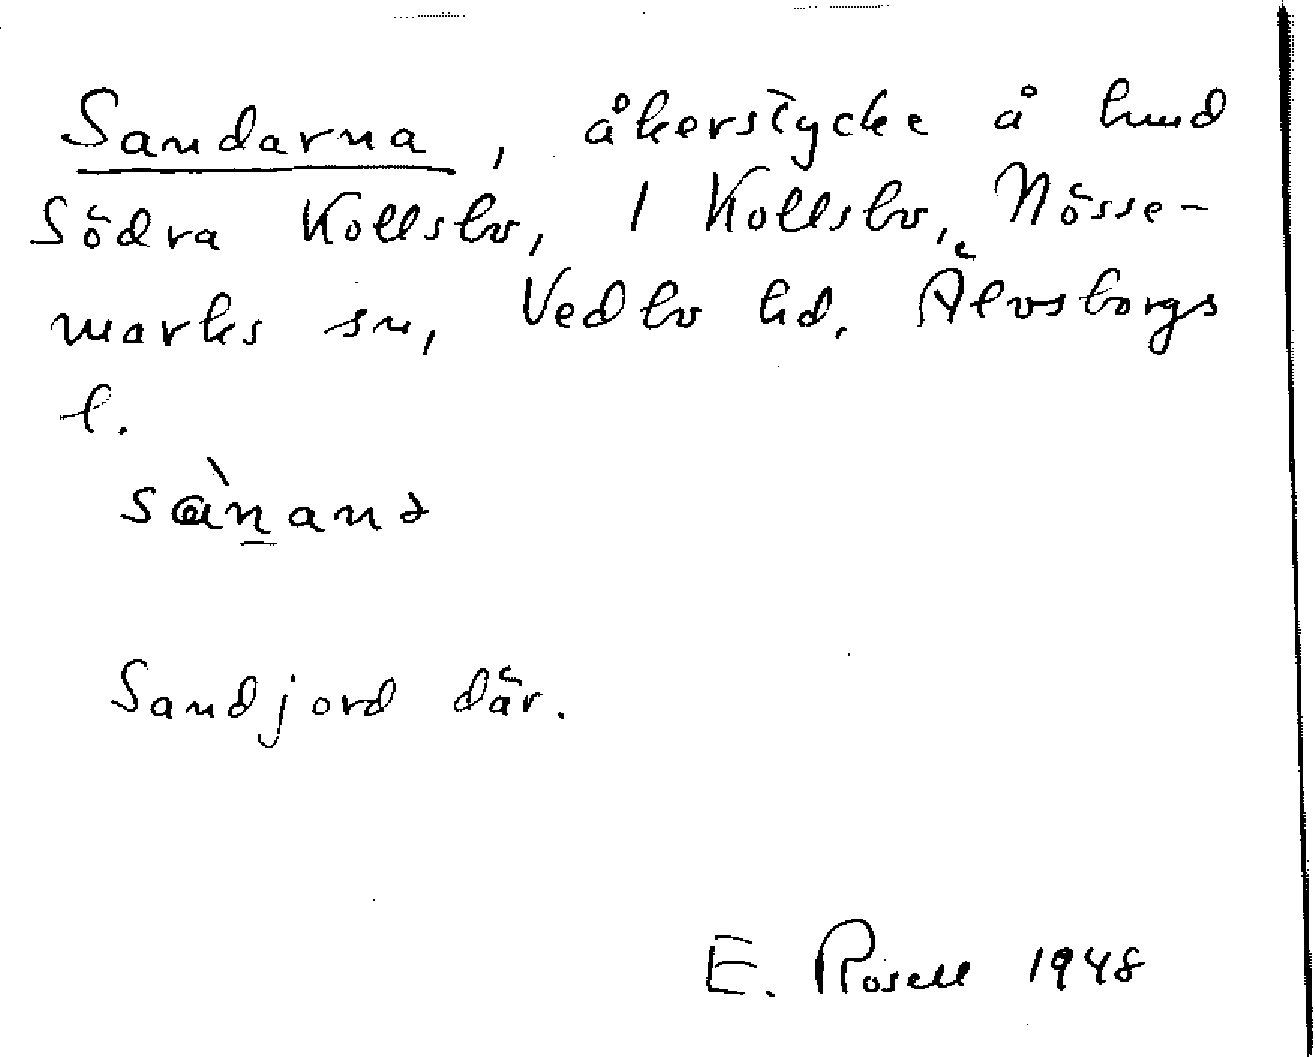 Sandarna, åkerstycke å hmd
Södra Kollsbo, 1 Kollsbo, Nösse-
marks sn, Vedbo hd, Älvsborgs
l.
Sandjord där.
E. Rosell 1948